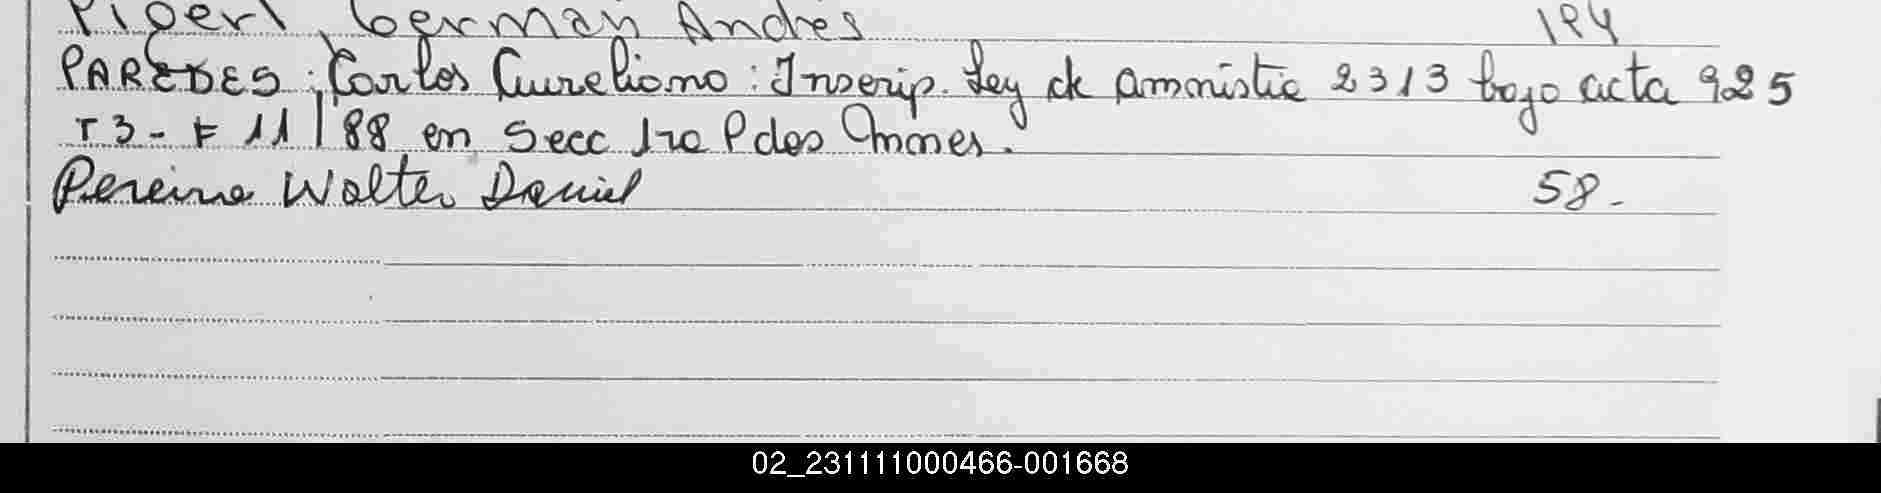 Germán Andrés 194
PAREDES, Carlos Aureliano: Inscrip. Ley de amnistia 2313 bajo acta 925
T3 - F 11 / 88 en Secc 1ra P dos
Pereira Walter Daniel 58.
02_231111000466-001668